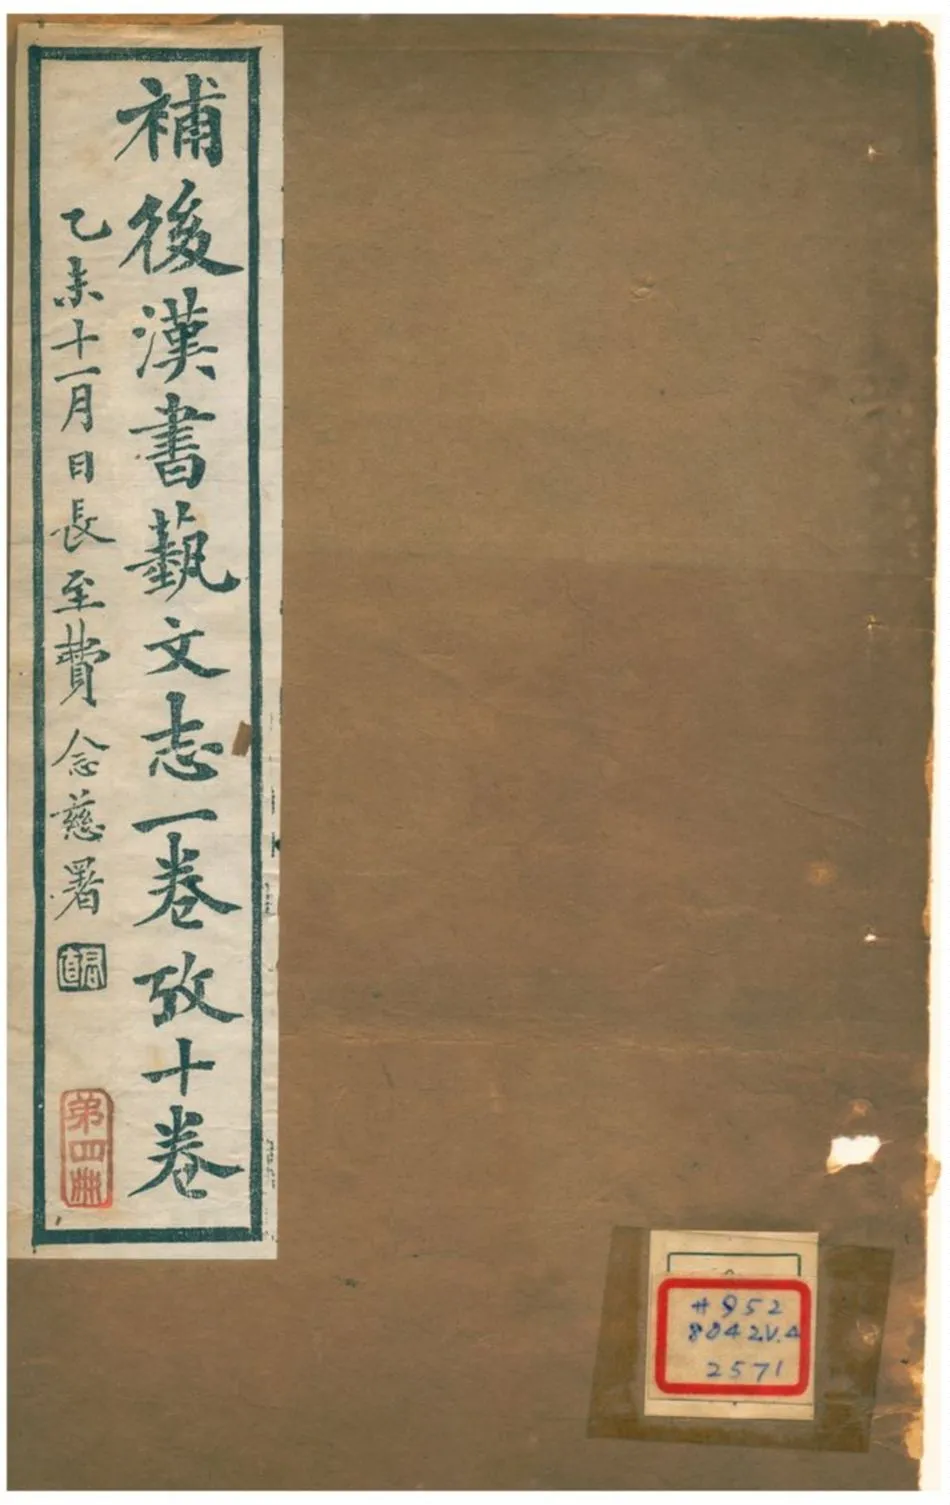 補後漢書藝文志一卷攷十卷
乙未十一月日長至費念慈署
第四冊
#952
8042V.4
2571